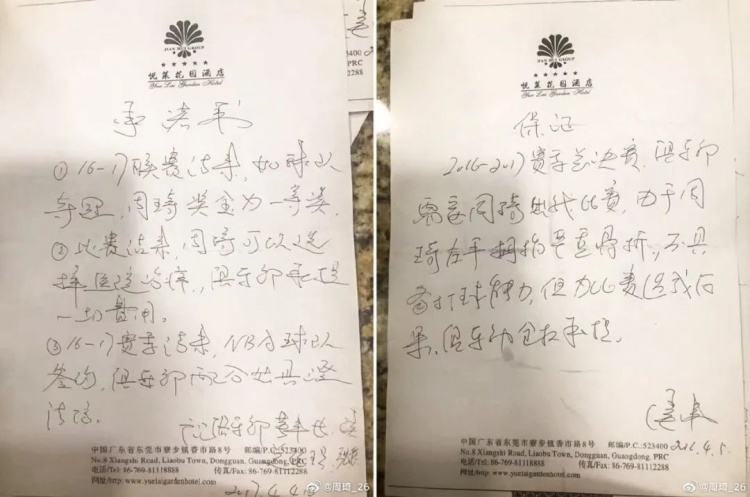 JIAN HUI GROUP
★ ★ ★ ★ ★
悦莱花园酒店
Yue Lai Garden Hotel
承诺书
①16-17联赛结束,如球队
夺冠,周琦奖金为一等奖,
②比赛结束,周琦可以选
择医院治疗,俱乐部承担
一切费用。
③16-17赛季结束,NBA球队
签约,俱乐部配合出具澄
清信。
中国广东省东莞市寮步镇香市路8号
No.8 Xiangshi Road, Liaobu Town, Dongguan, Guangdong, PRC
电话/Tel: 86-769-81118888
网址/http: www.yuelaigardenhotel.com
523400
PRC
112288
JIAN HUI GROUP
★ ★ ★ ★ ★
悦莱花园酒店
Yue Lai Garden Hotel
保证
2016-2017赛季总决赛,俱乐部
需要周琦出战比赛,由于周
琦左手拇指严重骨折,不具
备打球能力,但为比赛造成后
果,俱乐部全权承担。
中国广东省东莞市寮步镇香市路8号 邮编/P.C.:523400
No.8 Xiangshi Road, Liaobu Town, Dongguan, Guangdong, PRC
电话/Tel: 86-769-81118888 传真/Fax: 86-769-81112288
网址/http: www.yuelaigardenhotel.com
@周琦_26
@周琦_26